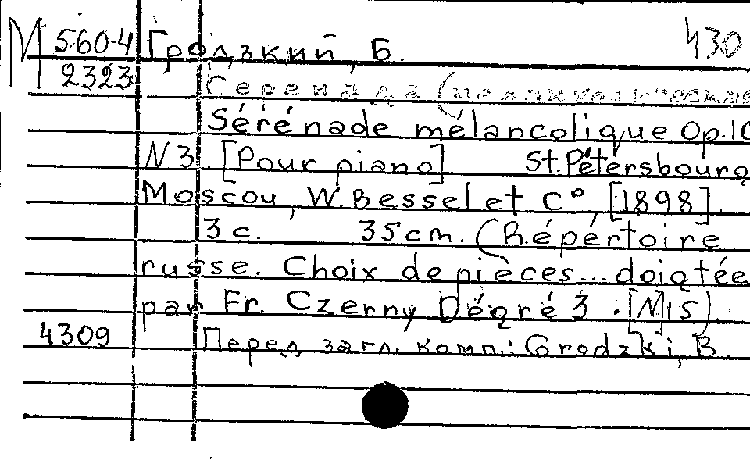 М 560-4 Гродзкий, Б. 430
2323 Серенада (меланхолическая
Sérénade mélancolique Op.10
N 3 [Pour piano] St. Pétersbourg
Moscou, W. Bessel et C°, [1898]
3 c. 35 cm. (Répertoire
russe. Choix de pièces... doigtée
par Fr. Czerny Degré 3. [N] 15)
4309 Перед загл. комп.: Grodzki, B